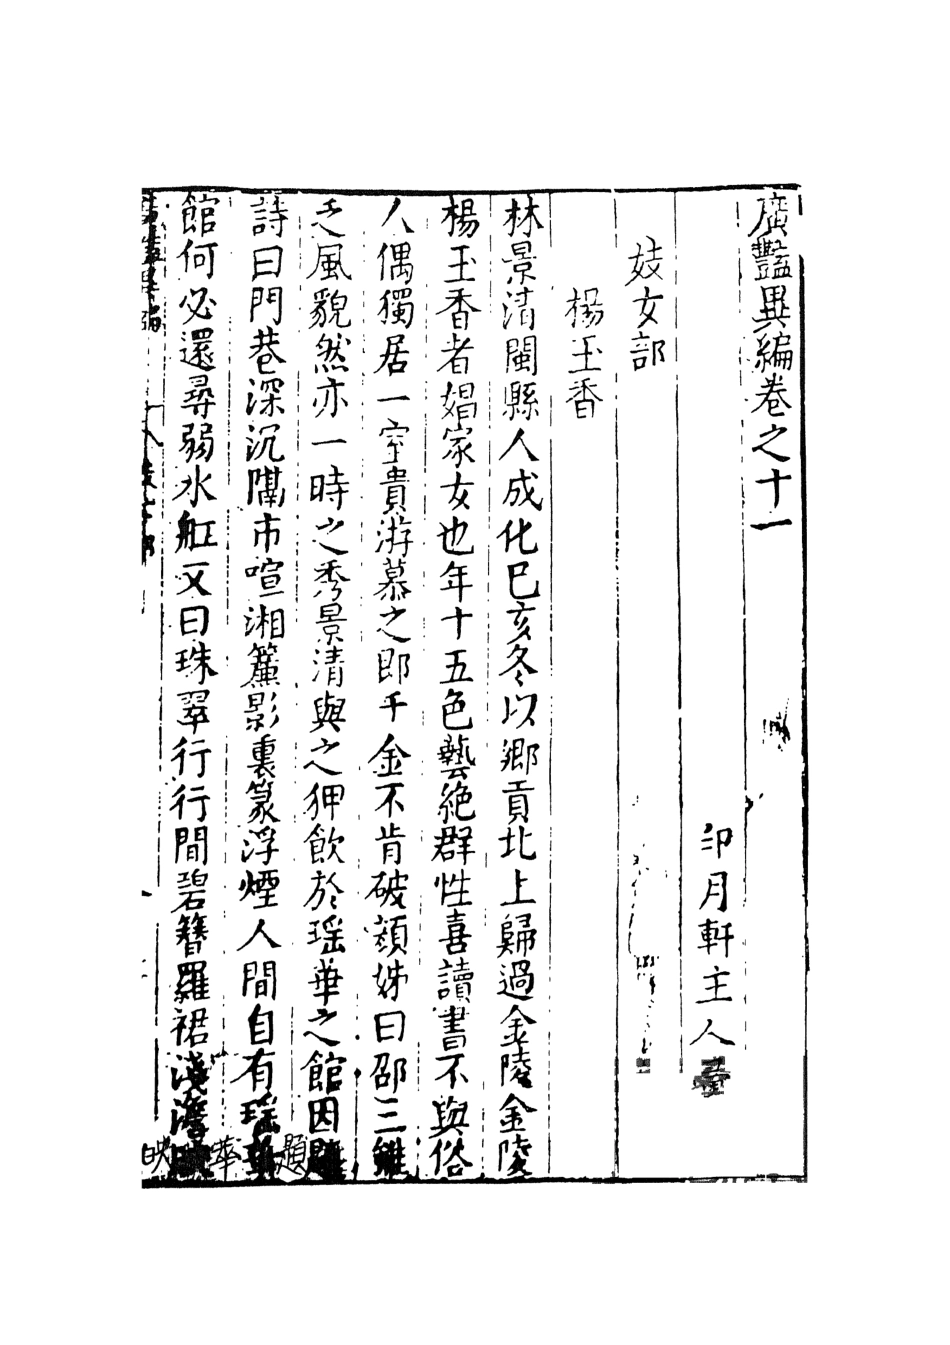 廣豔異編卷之十一
印月軒主人
妓女部
楊玉香
林景清閩縣人成化巳亥冬以鄉貢北上歸過金陵金陵
楊玉香者娼家女也年十五色藝絕群性喜讀書不與俗
人偶獨居一室貴游慕之即千金不肯破顏姊曰邵三雖
乏風貌然亦一時之秀景清與之狎飲於瑶華之館因題
詩曰門巷深沉隔市喧湘簾影裏篆浮煙人間自有瑶華
館何必還尋弱水舡又曰珠翠行行間碧簪羅裙淺澹映
題
華
映